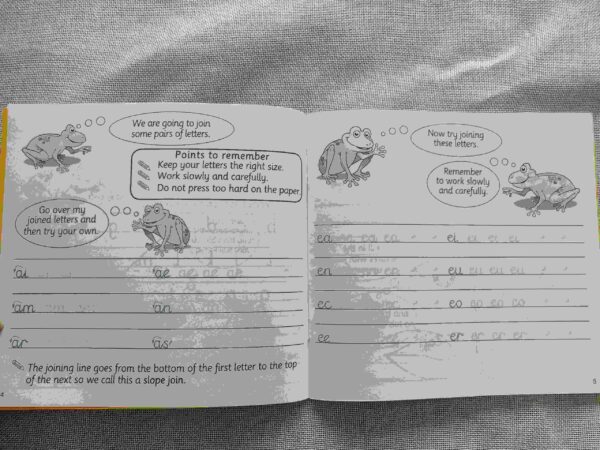 We are going to join
some pairs of letters.
Points to remember
Keep your letters the right size.
Work slowly and carefully.
Do not press too hard on the paper.
Go over my
joined letters and
then try your own.
ai
ae
am
an
ar
as
The joining line goes from the bottom of the first letter to the top
of the next so we call this a slope join.
4
Now try joining
these letters.
Remember
to work slowly
and carefully.
ea ea ea ea
ei ei ei ei
en
eu eu eu eu
ec
eo eo eo eo
ee
er er er er
5